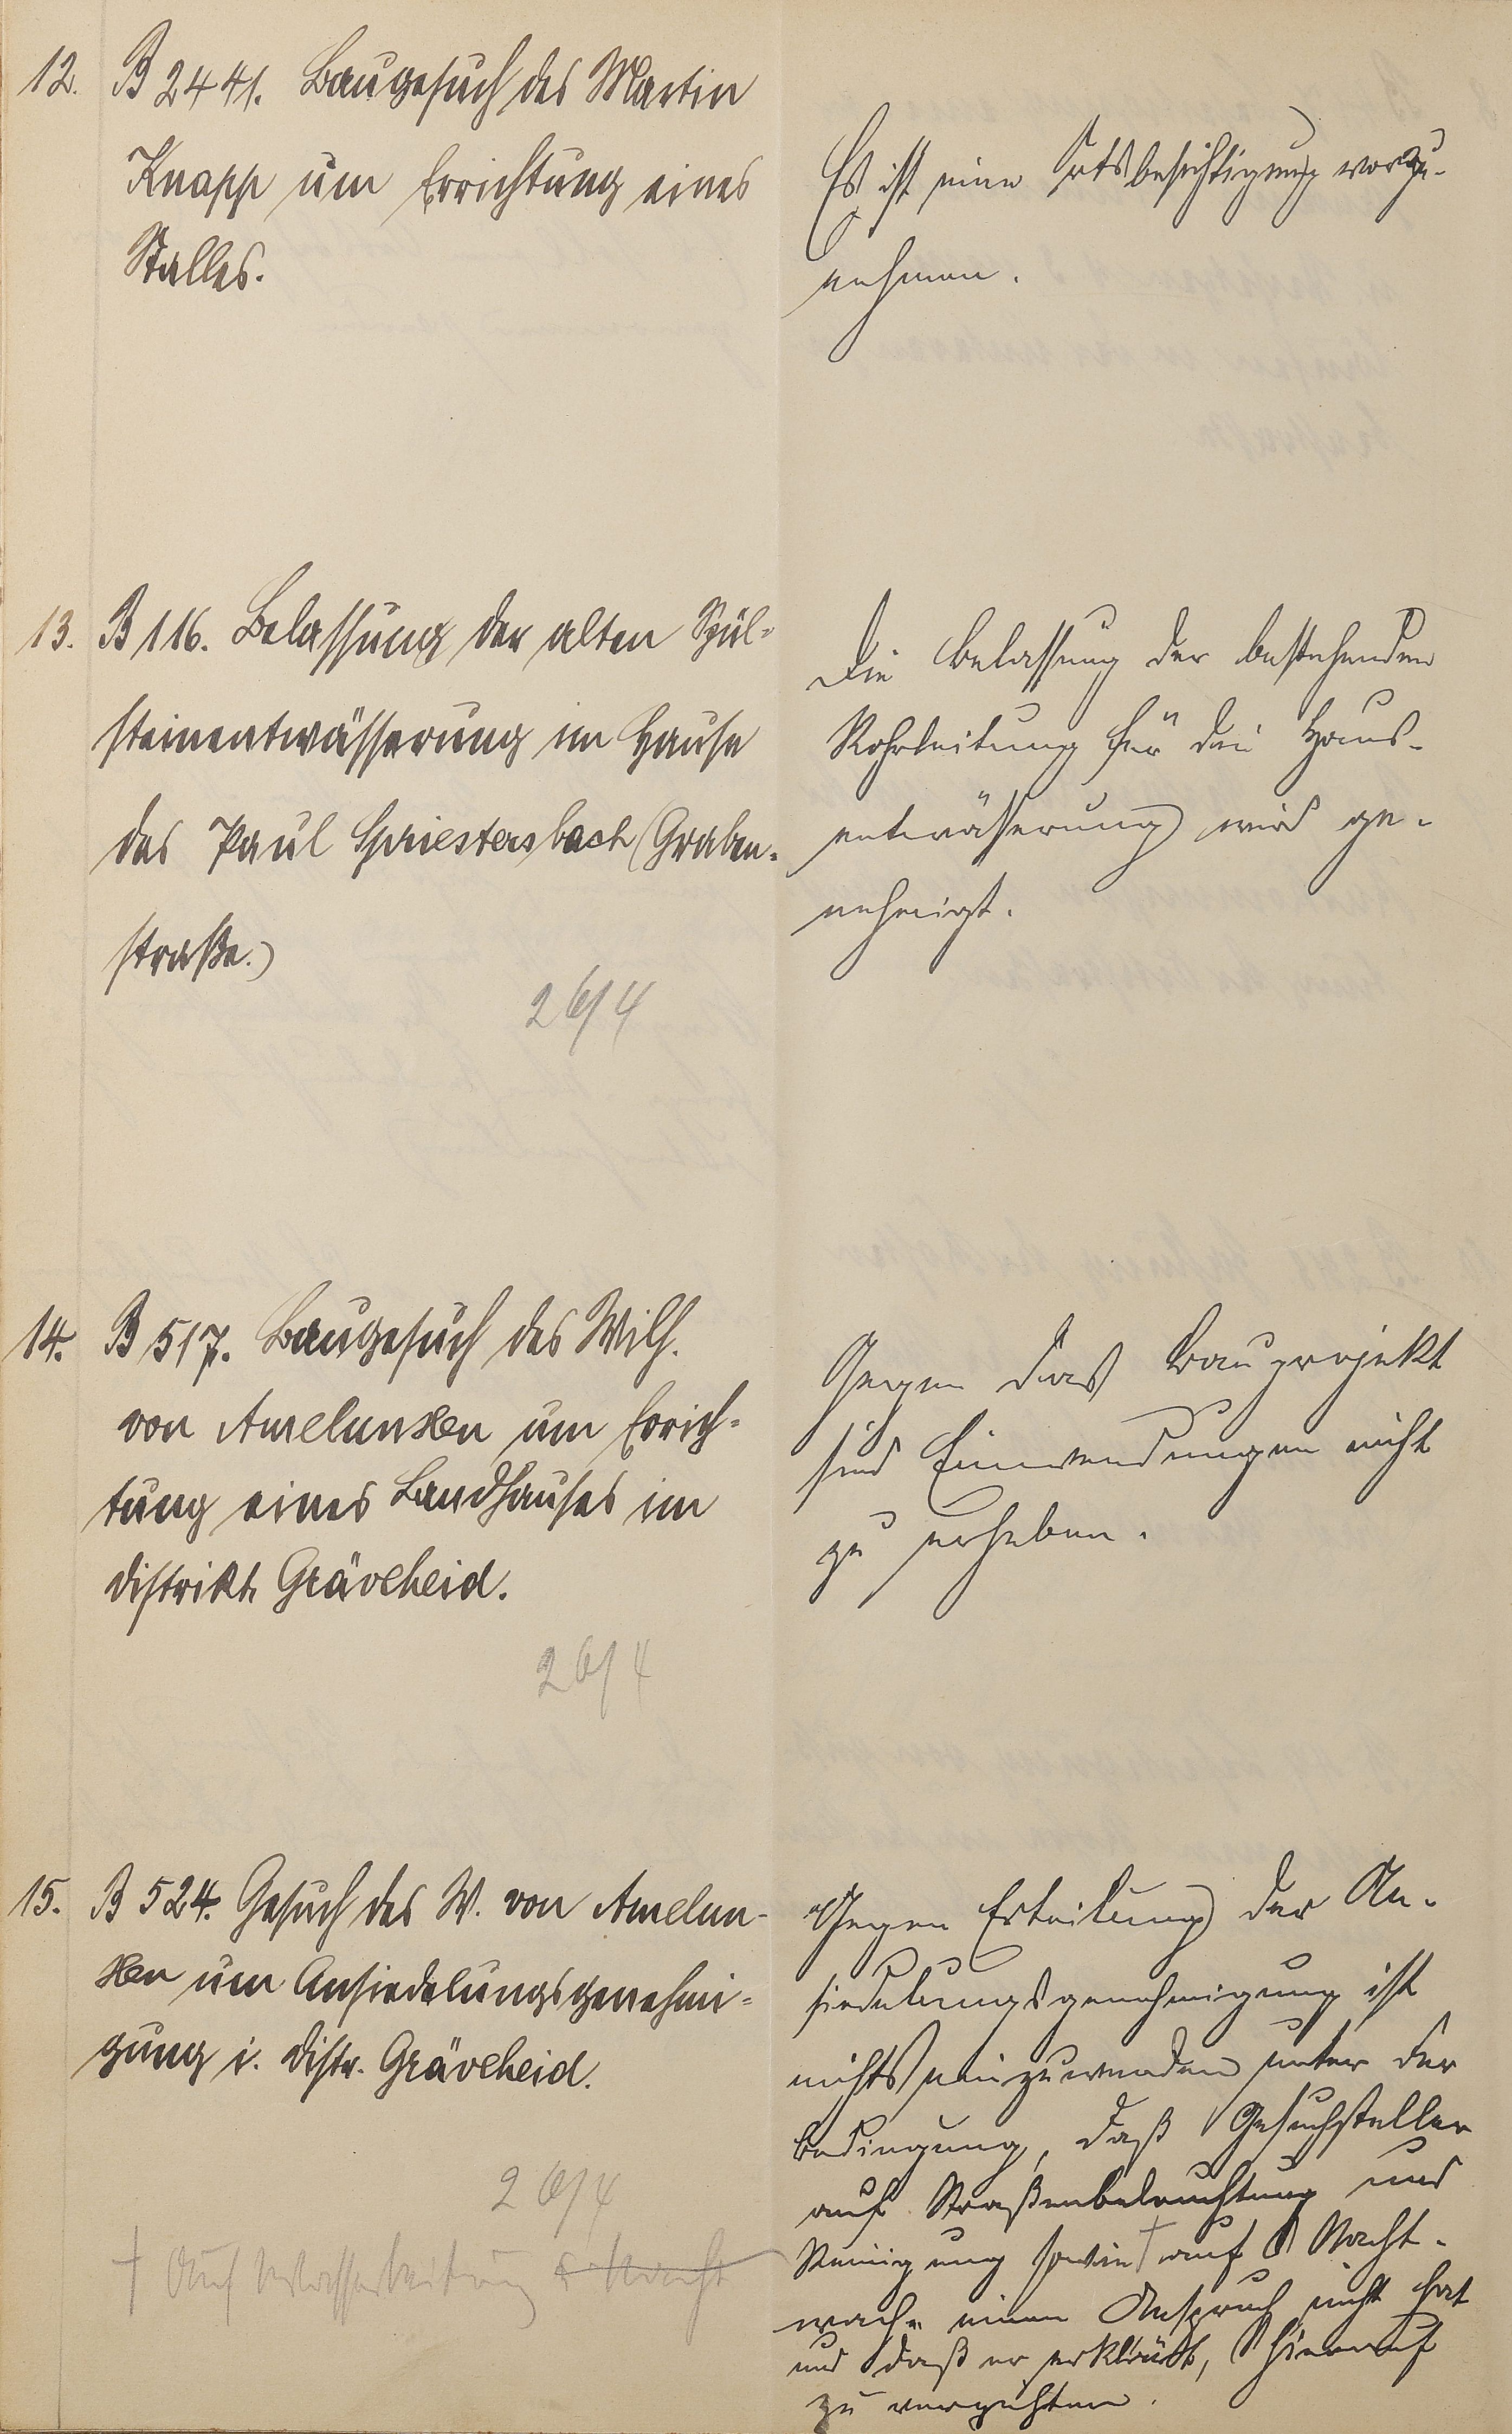 12. B 2441. Baugesuch des Martin
Knapp um Errichtung eines
Stalles.
Es ist eine Ortsbesichtigung vorzu-
nehmen.
13. B 116. Belassung der alten Spül-
steinentwässerung im Hause
des Paul Spriestersbach (Graben-
straße.)
26/4
Die Belassung der bestehenden
Rohrleitung für die Haus-
entwässerung wird ge-
nehmigt.
14. B 517. Baugesuch des Wilh.
von Amelunxen um Errich-
tung eines Landhauses im
Distrikt Gräveheid.
26/4
Gegen das Bauprojekt
sind Einwendungen nicht
zu erheben.
15. B 524. Gesuch des W. von Amelun-
xen um Ansiedelungsgenehmi-
gung i. Distr. Gräveheid.
26/4
† Auf Wasserleitung & Nacht
Gegen Erteilung der An-
siedelungsgenehmigung ist
nichts einzuwenden unter der
Bedingung, daß Gesuchsteller
auf Straßenbeleuchtung und
Reinigung sowie † auf Nacht-
wache einen Anspruch nicht hat
und daß er erklärt, hierauf
zu verzichten.